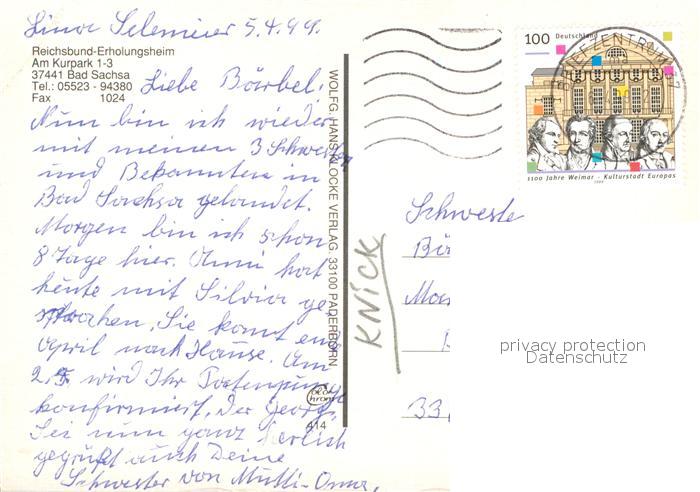 Lina Selemeier 5.4.99.
Reichsbund-Erholungsheim
Am Kurpark 1-3
37441 Bad Sachsa
Tel.: 05523 - 94380
Fax 1024
Liebe Bärbel.
Nun bin ich wieder
mit meinen 3 Schwester
und Bekannten in
Bad Sachsa gelandet.
Morgen bin ich schon
8 Tage hier. Anni hat
heute mit Silvia ge,
sprochen, Sie kommt ende
April nach Hause. Am
2,5 wird Ihr Patenjunge
konfirmiert, der Georg.
Sei nun ganz herlich
gegrüßt auch Deine
Schwester von Mutti-Oma,
WOLFG. HANS KLOCKE VERLAG 33100 PADERBORN
414
KNICK
100 Deutschland
BRIEFZENTRUM 37
1100 Jahre Weimar - Kulturstadt Europas
1999
Schweste
Bä
33
privacy protection
Datenschutz